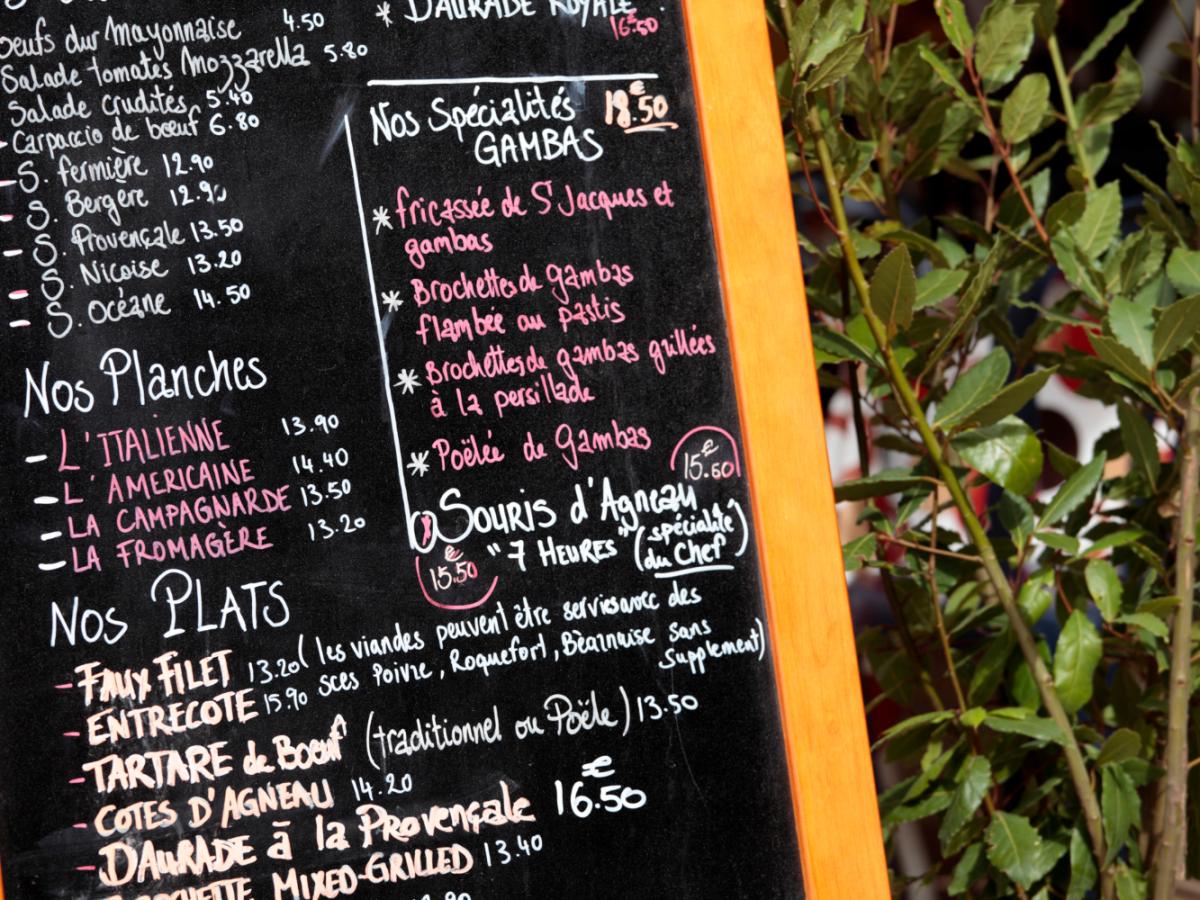 oeufs dur Mayonnaise 4.50
Salade tomates Mozzarella 5.80
Salade crudités 5.40
- Carpaccio de bœuf 6.80
- S. fermière 12.90
- S. Bergère 12.90
- S. Provençale 13.50
- S. Nicoise 13.20
- S. Océane 14.50
Nos Planches
- L'ITALIENNE 13.90
- L'AMERICAINE 14.40
- LA CAMPAGNARDE 13.50
- LA FROMAGÈRE 13.20
* DAURADE ROYALE
16.50
Nos Spécialités 18.50 €
GAMBAS
* fricassée de St Jacques et
gambas
* Brochettes de gambas
flambée au pastis
* Brochettes de gambas grillées
à la persillade
* Poëlée de Gambas
15.60 €
Souris d'Agneau
"7 HEURES" (spécialité
du Chef)
15.50 €
Nos PLATS
- FAUX FILET 13.20 (les viandes peuvent être servies avec des
- ENTRECOTE 15.90 sces Poivre, Roquefort, Béarnaise sans
supplement)
- TARTARE de Boeuf (traditionnel ou Poële) 13.50
- COTES D'AGNEAU 14.20
- DAURADE à la Provençale 16.50 €
MIXED-GRILLED 13.40